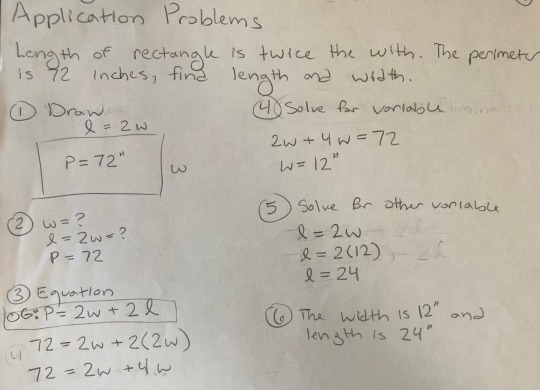 Application Problems
Length of rectangle is twice the with. The perimeter
is 72 inches, find length and width.
① Draw
l = 2w
P = 72"
w
② w = ?
l = 2w = ?
P = 72
③ Equation
OG: P = 2w + 2l
72 = 2w + 2(2w)
72 = 2w + 4w
④ Solve for variable
2w + 4w = 72
w = 12"
⑤ Solve for other variable
l = 2w
l = 2(12)
l = 24
⑥ The width is 12" and
length is 24"